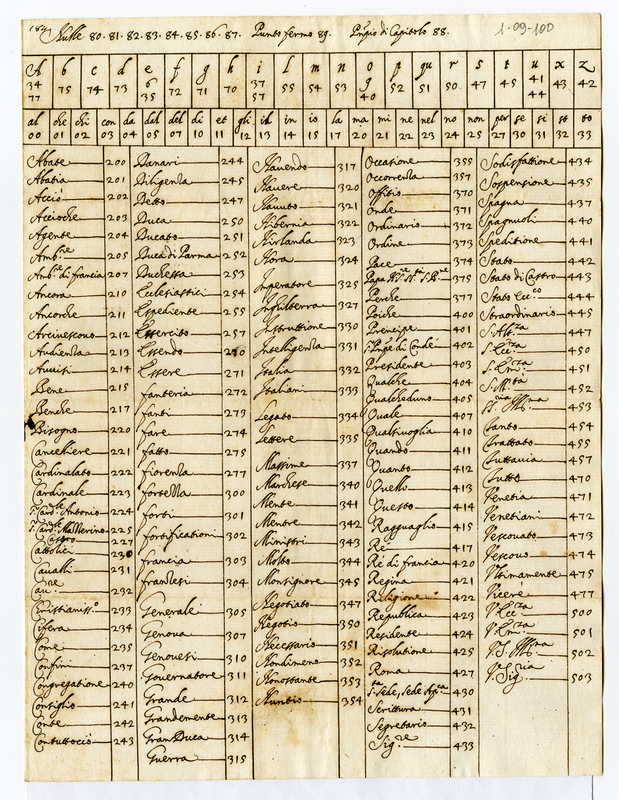 Nulle 80. 81. 82. 83. 84. 85. 86. 87. Punto fermo 89. Prñpio di Capitolo 88. 1-09-100
A b c d e f g h i l m n o p qu r s t u x z
34 77 75 74 73 6 35 72 71 70 37 57 55 54 53 9 40 52 51 50 47 45 41 44 43 42
al che chi con da del del di et gli il in io la ma mi ne nel no non per se si st to
00 01 02 03 04 05 07 10 11 12 13 14 15 17 20 21 22 23 24 25 27 30 31 32 33
Abate 200
Abatia 201
Acciò 202
Accioche 203
Agente 204
Amb.re 205
Amb.re di francia 207
Ancora 210
Ancorche 211
Arcivescovo 212
Audienza 213
Avvisi 214
Bene 215
Benche 217
Bisogno 220
Cancelliere 221
Cardinalato 222
Cardinale 223
S.r Card.le Antonio 224
S.r Card.le Mazzerino 225
Castro 227
Cattolici 230
Cavalli 231
Cav.re 232
Cristianiss.o 233
Cifera 234
Come 235
Confini 237
Congregatione 240
Consiglio 241
Conte 242
Contuttociò 243
Danari 244
Diligenza 245
Detto 247
Duca 250
Ducato 251
Duca di Parma 252
Duchessa 253
Ecclesiastici 254
Espediente 255
Essercito 257
Essendo 270
Essere 271
fanteria 272
fanti 273
fare 274
fatto 275
fiorenza 277
fortezza 300
forti 301
fortificationi 302
francia 303
franzesi 304
Generale 305
Genova 307
Genovesi 310
Governatore 311
Grande 312
Grandemente 313
Gran Duca 314
Guerra 315
Havendo 317
Havere 320
Havuto 321
Hibernia 322
Hirlanda 323
Hora 324
Imperatore 325
Inghilterra 327
Instruttione 330
Intelligenza 331
Italia 332
Italiani 333
Legato 334
Lettere 335
Massime 337
Marchese 340
Mente 341
Mentre 342
Ministri 343
Molto 344
Monsignore 345
Negotiato 347
Negotio 350
Necessario 351
Nondimeno 352
Nonostante 353
Nuntio 354
Occasione 355
Occorrenza 357
Offitio 370
Onde 371
Ordinario 372
Ordine 373
Pace 374
Papa 375
Perche 377
Poiche 400
Prencipe 401
S.r Prñpe di Condé 402
Presidente 403
Qualche 404
Qualcheduno 405
Quale 407
Qualsivoglia 410
Quando 411
Quanto 412
Quello 413
Questo 414
Ragguaglio 415
Re 417
Re di francia 420
Regina 421
Religione 422
Republica 423
Residente 424
Risolutione 425
Roma 427
S.ta Sede, Sede Ap.ca 430
Scrittura 431
Segretario 432
Sig.re 433
Sodisfattione 434
Sospensione 435
Spagna 437
Spagnuoli 440
Speditione 441
Stato 442
Stato di Castro 443
Stato Ecc.co 444
Straordinario 445
S. Alt.za 447
S. Ecc.za 450
S. Em.za 451
S. M.ta 452
453
Tanto 454
Trattato 455
Tuttavia 457
Tutto 470
Venetia 471
Venetiani 472
Vescovato 473
Vescovo 474
Ultimamente 475
Vicere 477
V. Ecc.za 500
V. Em.za 501
502
V. Sig.ria 503